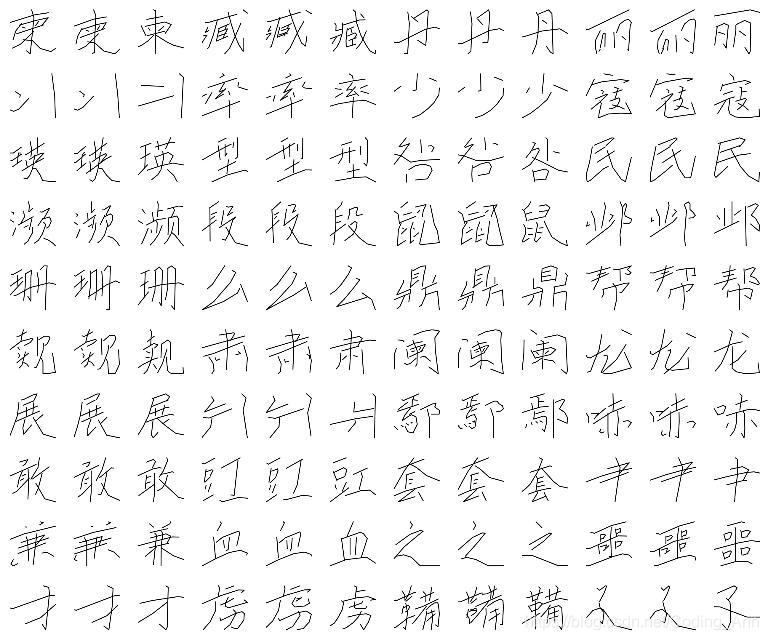 柬柬柬臧臧臧丹丹丹丽丽丽
率率率少少少寇寇寇
瑛瑛瑛型型型咎咎咎民民民
濒濒濒段段段鼠鼠鼠邺邺邺
珊珊珊么么么鼎鼎鼎帮帮帮
觌觌觌肃肃肃阑阑阑龙龙龙
展展展鄢鄢鄢味味味
敢敢敢豇豇豇套套套尹尹尹
兼兼兼血血血之之之噩噩噩
才才才虏虏虏鞴鞴鞴孑孑孑